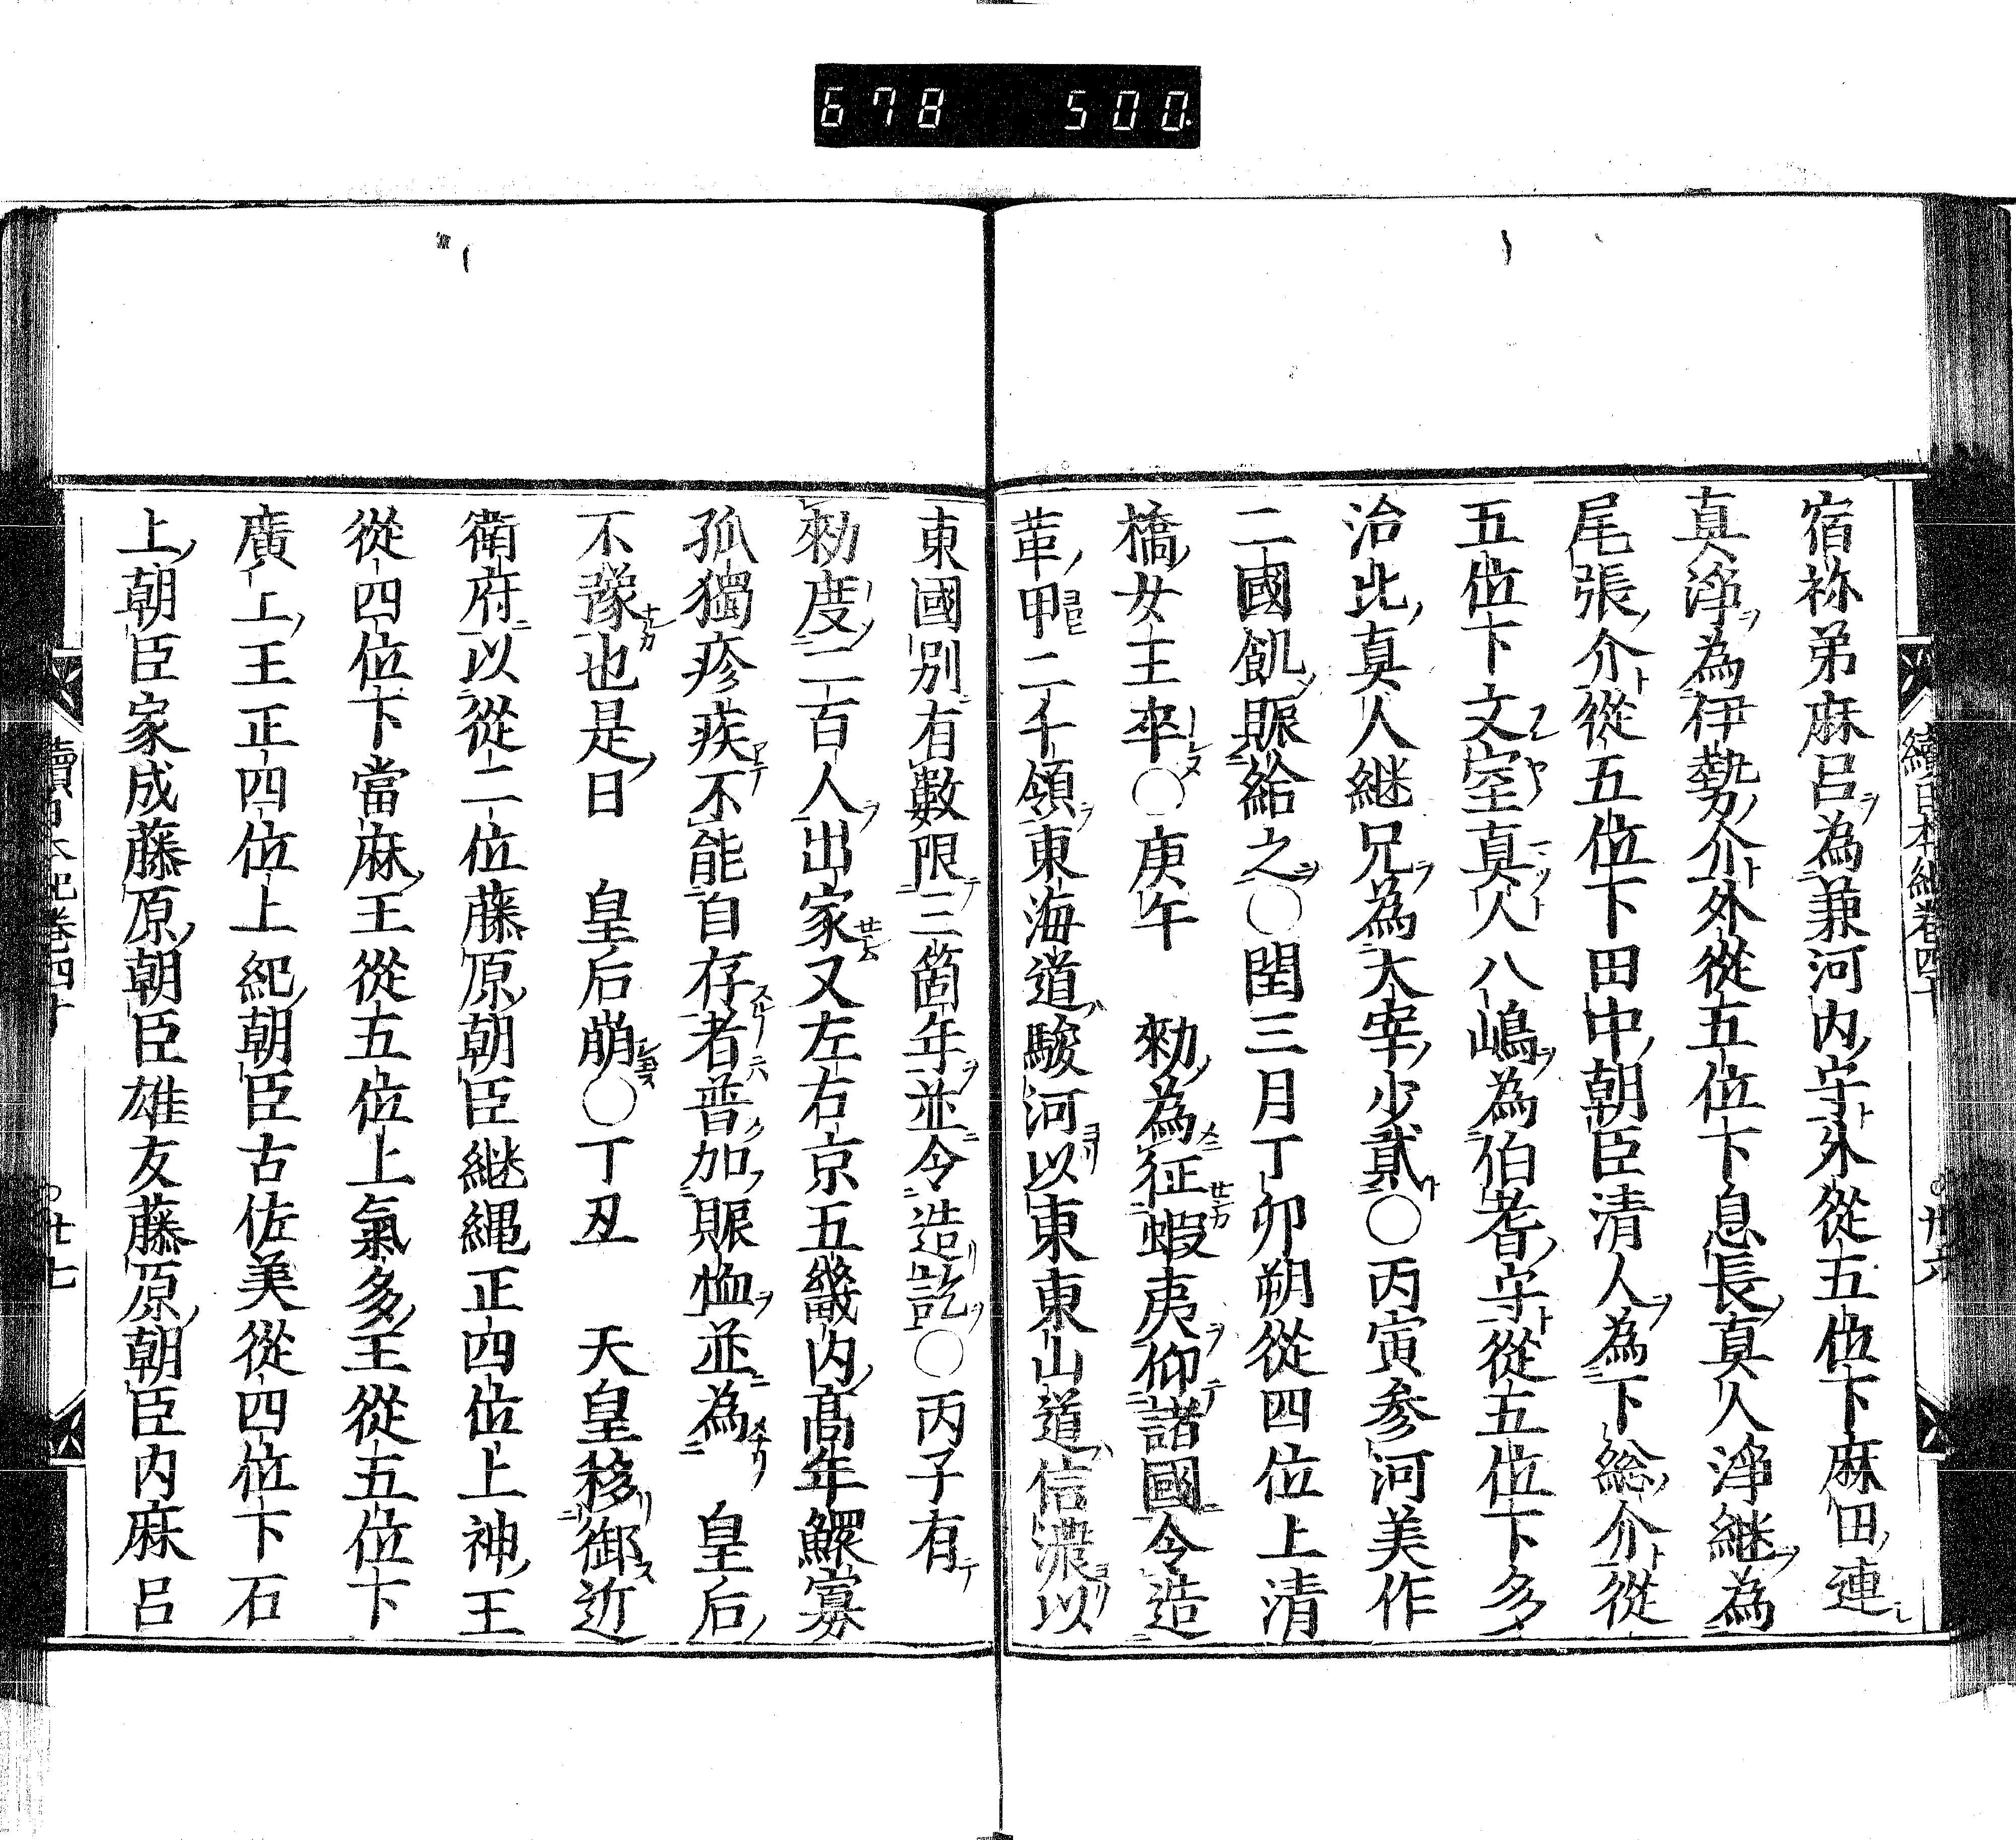 678 500.
宿祢弟麻呂為兼河内守外從五位下麻田連
真淨為伊勢介外從五位下息長真人淨継為
尾張介從五位下田中朝臣清人為下総介從
五位下文室真人八嶋為伯耆守從五位下多
治比真人継兄為大宰少貳〇丙寅参河美作
二國飢賑給之〇閏三月丁卯朔從四位上清
橋女王卒〇庚午 勅為征蝦夷仰諸國令造
革甲二千領東海道駿河以東東山道信濃以
東國別有數限三箇年並令造訖〇丙子有
勅度二百人出家又左右京五畿内髙年鰥寡
孤獨疹疾不能自存者普加賑恤並為 皇后
不豫也是日 皇后崩〇丁丑 天皇移御近
衛府以從二位藤原朝臣継縄正四位上神王
從四位下當麻王從五位上氣多王從五位下
廣上王正四位上紀朝臣古佐美從四位下石
上朝臣家成藤原朝臣雄友藤原朝臣内麻呂